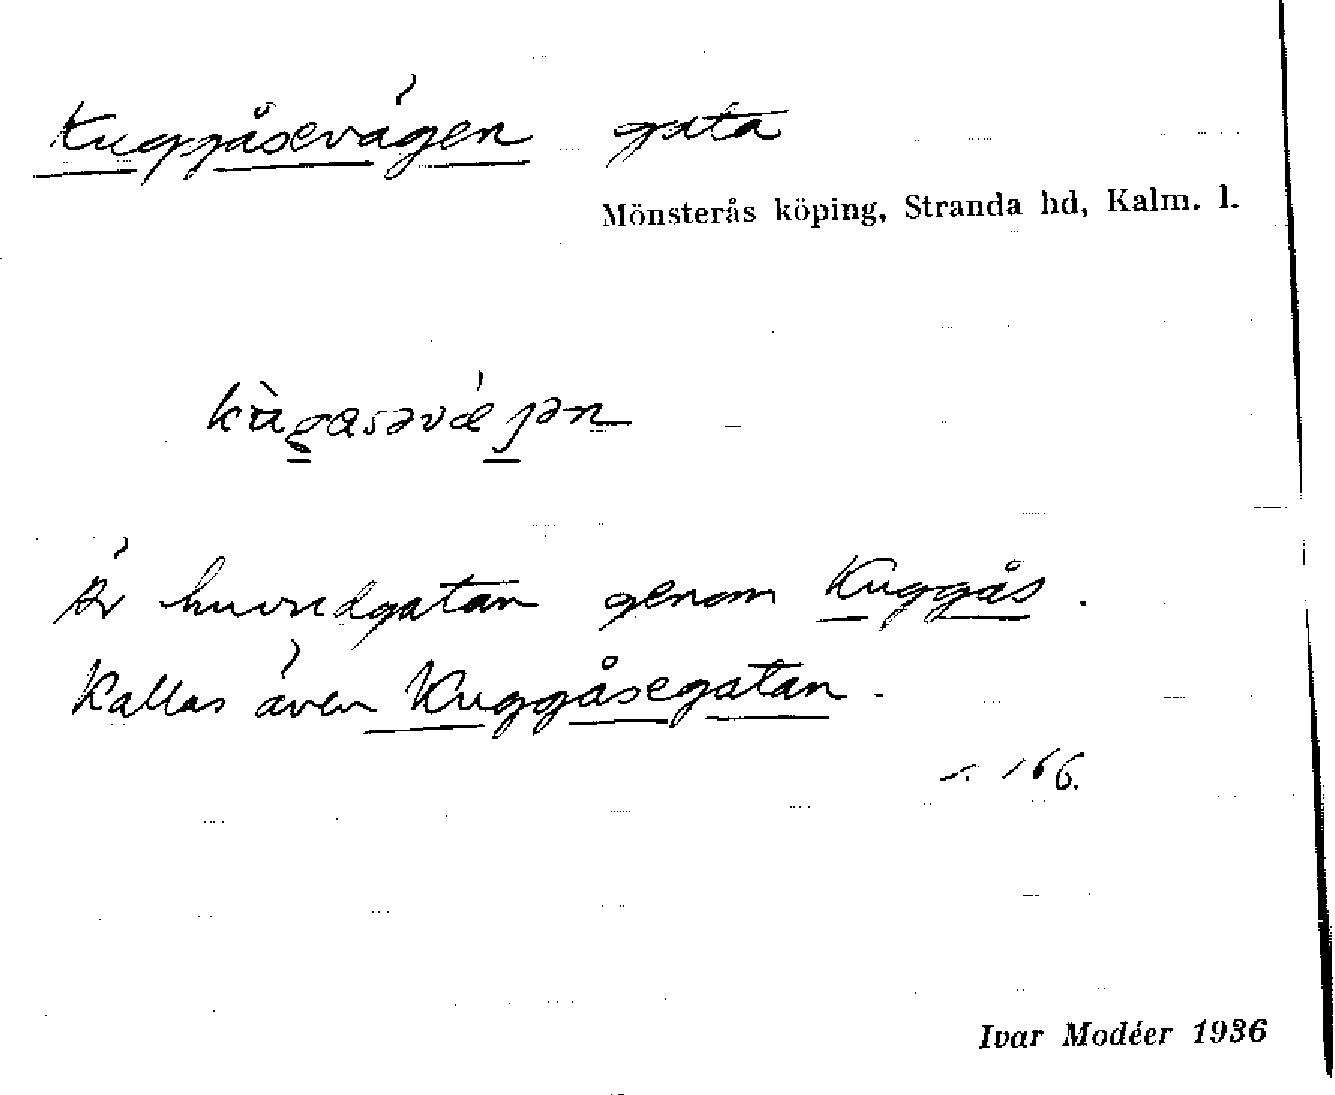 Kuggåsevägen gata
Mönsterås köping, Stranda hd, Kalm. l.
kùgasəvǽjən
Är huvudgatan genom Kuggås.
Kallas även Kuggåsegatan.
s. 166.
Ivar Modéer 1936